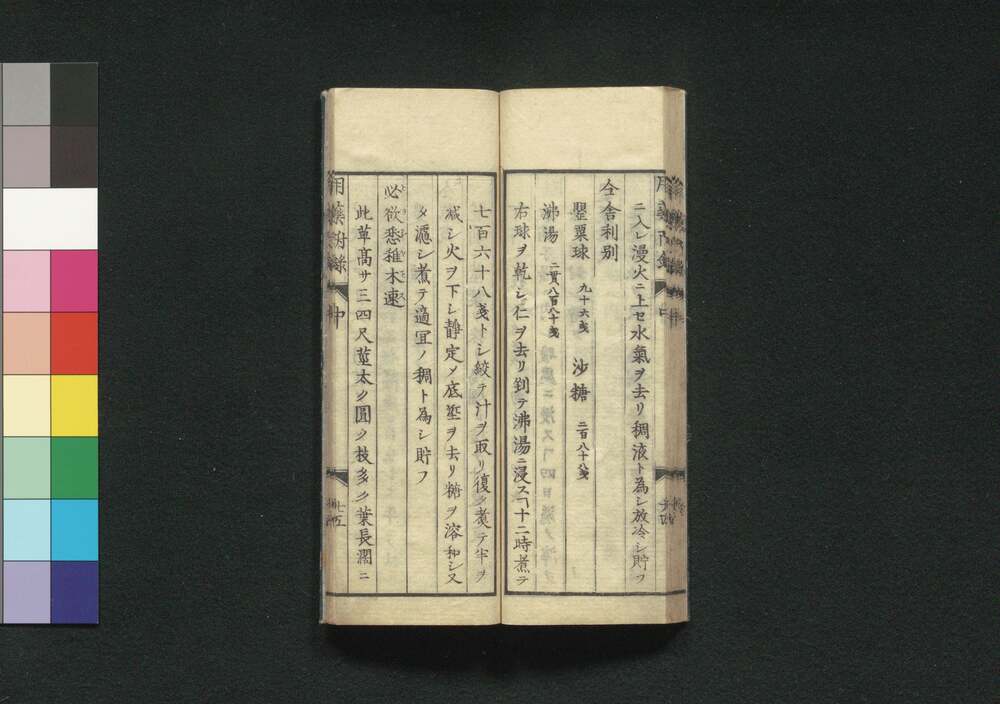 ニ入レ漫火ニ上セ水氣ヲ去リ稠液ト為シ放冷シ貯フ
仝舎利別
罌粟球 九十六戔 沙糖 二百八十八戔
沸湯 二貫八百八十戔
右球ヲ乾シ仁ヲ去リ剉テ沸湯ニ浸スヿ十二時煮テ
七百六十八戔トシ絞テ汁ヲ取リ復タ煮テ半ヲ
减シ火ヲ下シ静定メ底埊ヲ去リ糖ヲ溶和シ又
タ濾シ煮テ適冝ノ稠ト為シ貯フ
必欲悉雅木速
此草髙サ三四尺莖太ク圓ク枝多ク葉長濶ニ
用藥附錄 中 七十五